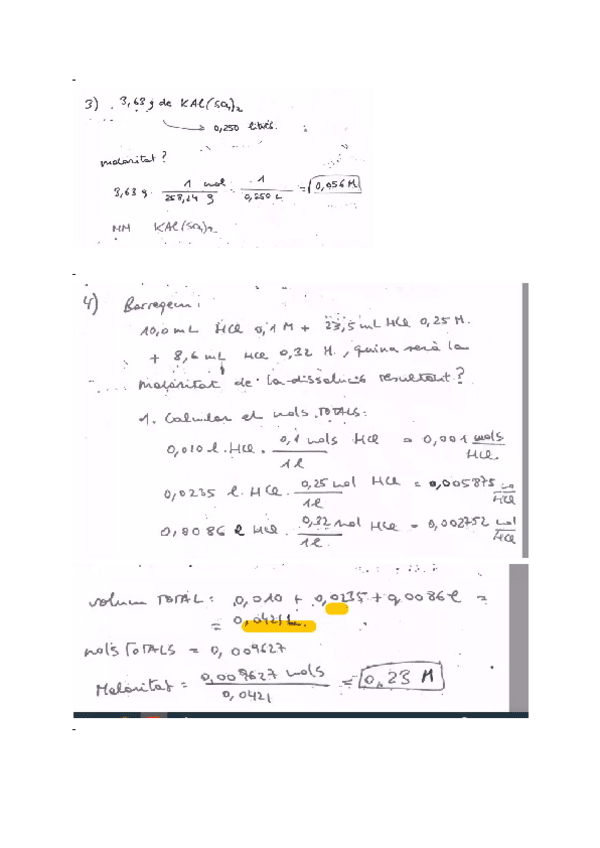 3) 3,63 g de KAl(SO4)2
→ 0,250 litres.
molaritat?
3,63 g · 1 mol / 258,14 g · 1 / 0,250 L = 0,056 M
MM KAl(SO4)2
4) Barregem:
10,0 mL HCl 0,1 M + 23,5 mL HCl 0,25 M.
+ 8,6 mL HCl 0,32 M., quina serà la
molaritat de la dissolució resultant?
1. Calcular el mols TOTALS:
0,010 l. HCl · 0,1 mols HCl / 1 l = 0,001 mols / HCl.
0,0235 l. HCl · 0,25 mol HCl / 1 l = 0,005875 / HCl
0,0086 l HCl · 0,32 mol HCl / 1 l = 0,002752 mol / HCl
volum TOTAL: 0,010 + 0,0235 + 0,0086 l =
= 0,0421 L.
mols TOTALS = 0,009627
Molaritat = 0,009627 mols / 0,0421 = 0,23 M